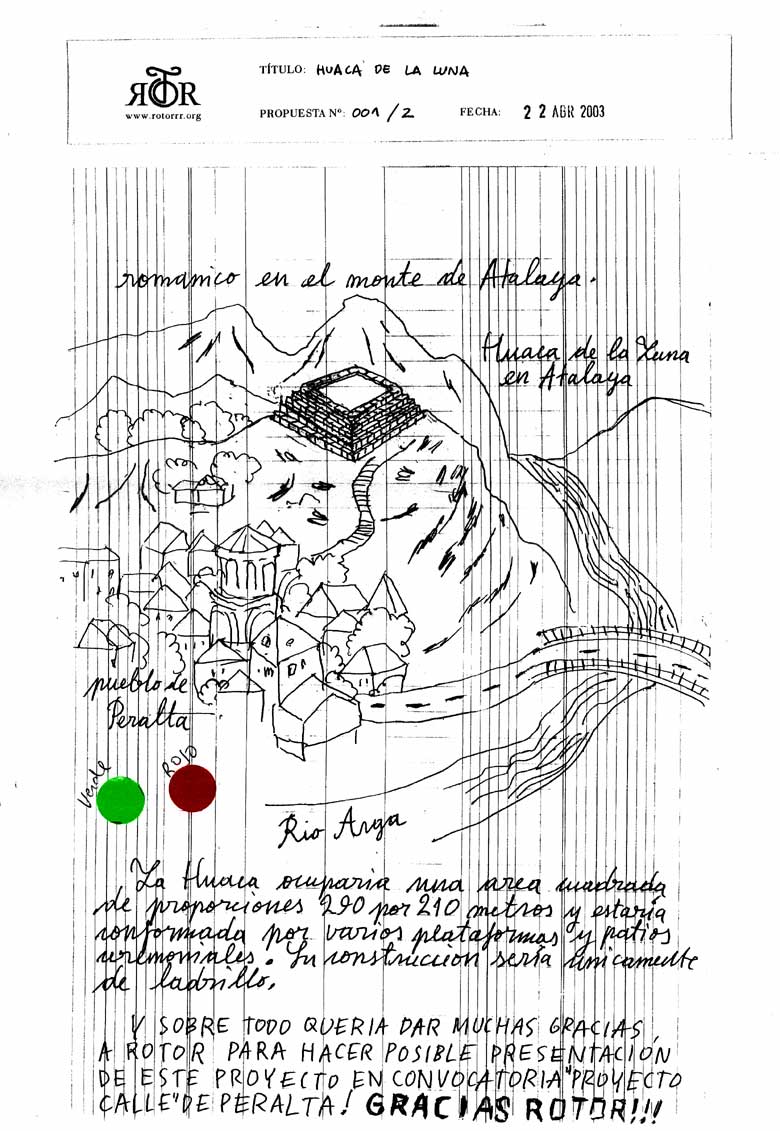 ROTOR
www.rotorrr.org
TÍTULO: HUACA DE LA LUNA
PROPUESTA Nº: 001/2 FECHA: 22 ABR 2003
romanico en el monte de Atalaya.
Huaca de la Luna
en Atalaya
pueblo de
Peralta
Verde
ROJO
Rio Arga
La Huaca ocuparia una area cuadrada
de proporciones 290 por 210 metros y estaría
conformada por varios plataformas y patios
ceremoniales. Su construccion sería únicamente
de ladrillo.
Y SOBRE TODO QUERIA DAR MUCHAS GRACIAS
A ROTOR PARA HACER POSIBLE PRESENTACIÓN
DE ESTE PROYECTO EN CONVOCATORIA "PROYECTO
CALLE" DE PERALTA! GRACIAS ROTOR!!!